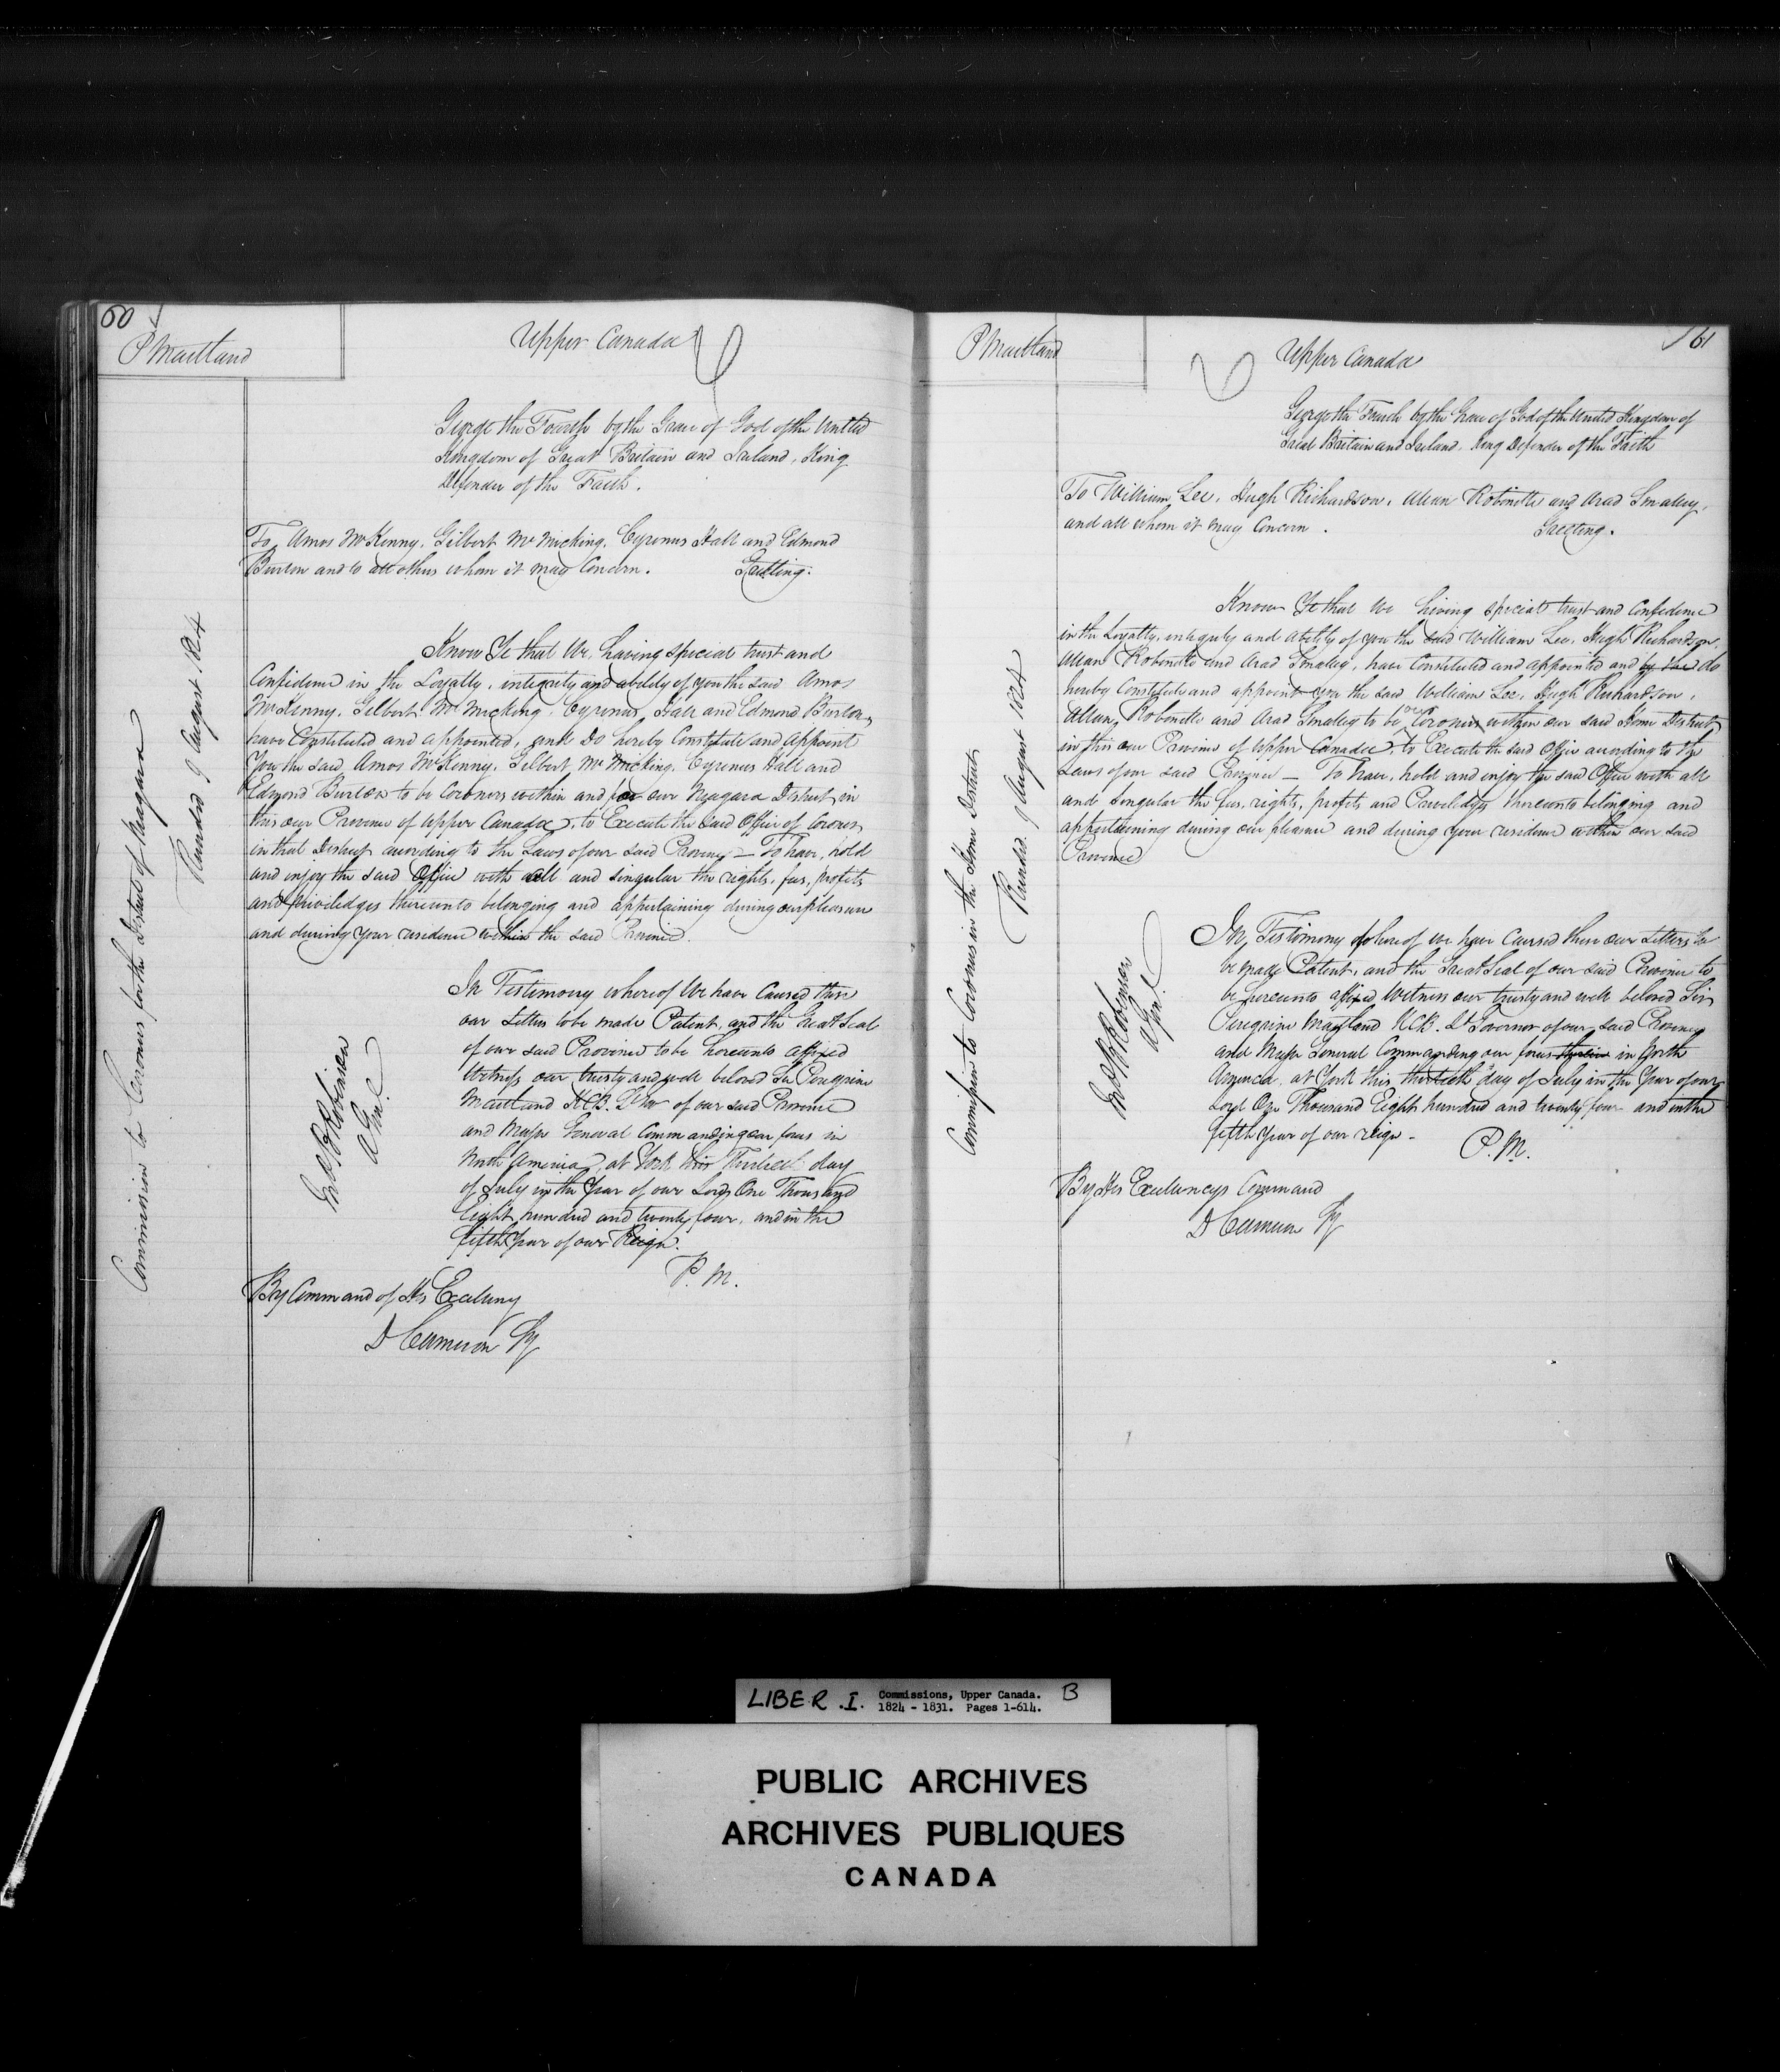 60
P Maitland
Upper Canada
George the Fourth by the Grace of God of the United
Kingdom of Great Britain and Ireland, King
Defender of the Faith.
To Amos McKenny, Gilbert McMicking, Cyrenus Hall and Edmond
Burton and to all others whom it may Concern. Greeting:
Know Ye that We, having special trust and
Confidence in the Loyalty, integrity and ability of you the said Amos
McKenny, Gilbert McMicking, Cyrenus Hall and Edmond Burton,
have Constituted and appointed, and Do hereby Constitute and appoint
You the said Amos McKenny, Gilbert McMicking, Cyrenus Hall and
Edmond Burton to be Coroners within and for our Niagara District in
this our Province of Upper Canada, to Execute the said Office of Coroner
in that District according to the Laws of our said Province – To have, hold
and enjoy the said Office with all and singular the rights, fees, profits
and priviledges thereunto belonging and appertaining during our pleasure
and during your residence within the said Province.
In Testimony whereof We have Caused these
our Letters to be made Patent, and the Great Seal
of our said Province to be hereunto affixed
Witness our trusty and well beloved Sir Peregrine
Maitland KCB. Lt Gov of our said Province
and Major General Commanding our forces in
North America, at York this Thirtieth day
of July in the Year of our Lord One Thousand
Eight hundred and twenty four, and in the
fifth Year of our Reign.
P. M.
By Command of His Excellency
D Cameron Sy
Commission to Coroners for the District of Niagara
Recorded 9 August 1824
Jno B Robinson
A Gnl.
61
P Maitland
Upper Canada
George the Fourth by the Grace of God of the United Kingdom of
Great Britain and Ireland, King Defender of the Faith
To William Lee, Hugh Richardson, Allan Robinette and Arad Smalley,
and all whom it may Concern. Greeting.
Know Ye that We having special trust and Confidence
in the Loyalty, integrity and ability of you the said William Lee, Hugh Richardson,
Allan Robinette and Arad Smalley, have Constituted and appointed and do
hereby Constitute and appoint you the said William Lee, Hugh Richardson,
Allan Robinette and Arad Smalley to be our Coroners within our said Home District
in this our Province of Upper Canada, to Execute the said Office according to the
Laws of our said Province – To have, hold and enjoy the said Office with all
and singular the fees, rights, profits and Priviledges thereunto belonging and
appertaining during our pleasure and during your residence within our said
Province
In Testimony whereof we have Caused these our Letters to
be made Patent, and the Great Seal of our said Province to
be hereunto affixed Witness our trusty and well beloved Sir
Peregrine Maitland KCB. Lt Governor of our said Province
and Major General Commanding our forces therein in North
America, at York this thirtieth day of July in the Year of our
Lord One Thousand Eight hundred and twenty four and in the
fifth Year of our reign – P. M.
By His Excellencys Command
D Cameron Sy
Commission to Coroners in the Home District
Recorded 9 August 1824
Jno B Robinson
A Gnl.
LIBER .I. Commissions, Upper Canada. B
1824 - 1831. Pages 1-614.
PUBLIC ARCHIVES
ARCHIVES PUBLIQUES
CANADA